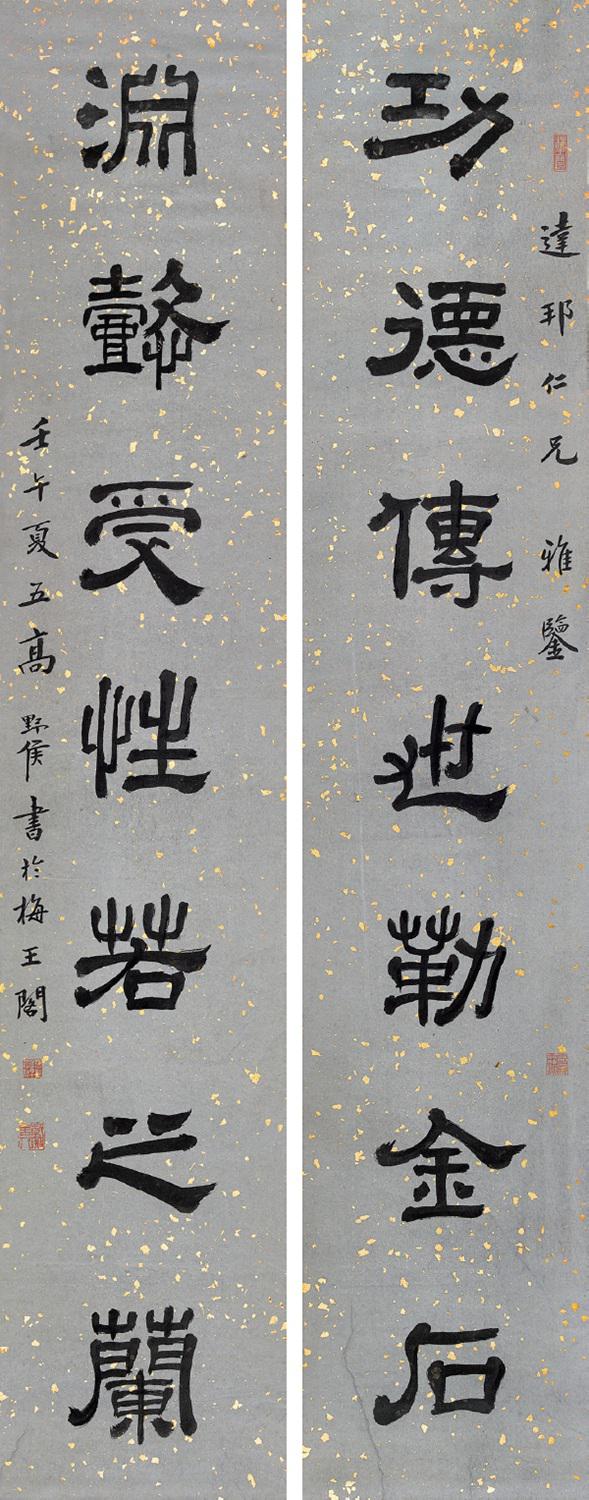 達邦仁兄雅鑒
功德傳世勒金石
淵懿受性若之蘭
壬午夏五高野侯書於梅王閣